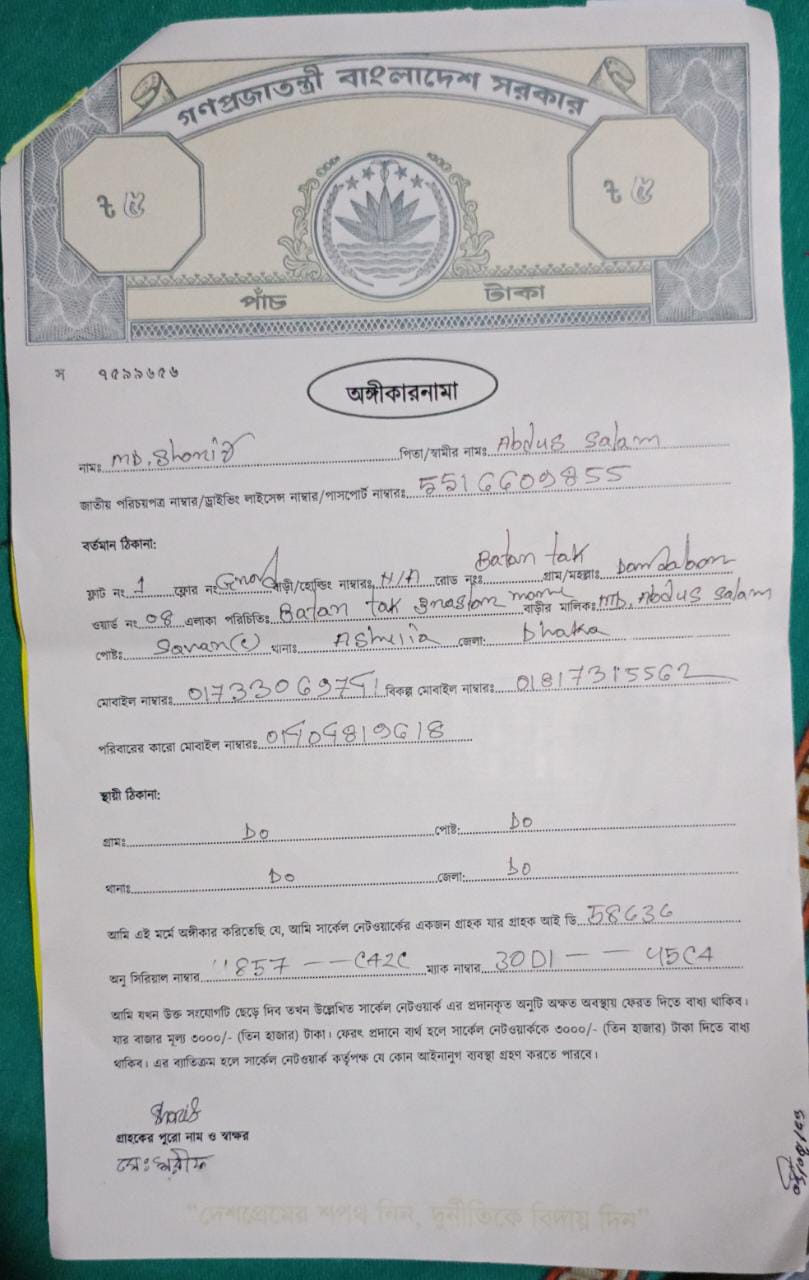 গণপ্রজাতন্ত্রী বাংলাদেশ সরকার
৳ ৫ ৳ ৫
পাঁচ টাকা
স ৭৫৯৯৬৫৬
অঙ্গীকারনামা
নামঃ MD. Shorif পিতা/স্বামীর নামঃ Abdus salam
জাতীয় পরিচয়পত্র নাম্বার/ড্রাইভিং লাইসেন্স নাম্বার/পাসপোর্ট নাম্বারঃ 5516609855
বর্তমান ঠিকানা:
ফ্লাট নং 1 ফ্লোর নং বাড়ী/হোল্ডিং নাম্বারঃ N/A রোড নংঃ Batan tak গ্রাম/মহল্লাঃ
ওয়ার্ড নং 08 এলাকা পরিচিতিঃ Batan tak বাড়ীর মালিকঃ MD. Abdus salam
পোষ্টঃ থানাঃ Ashulia জেলা: Dhaka
মোবাইল নাম্বারঃ বিকল্প মোবাইল নাম্বারঃ 01817315562
পরিবারের কারো মোবাইল নাম্বারঃ
স্থায়ী ঠিকানা:
গ্রামঃ Do পোষ্ট: Do
থানাঃ Do জেলা: Do
আমি এই মর্মে অঙ্গীকার করিতেছি যে, আমি সার্কেল নেটওয়ার্কের একজন গ্রাহক যার গ্রাহক আই ডি 58636
অনু সিরিয়াল নাম্বার 857 -- C42C ম্যাক নাম্বার 30D1 -- 45C4
আমি যখন উক্ত সংযোগটি ছেড়ে দিব তখন উল্লেখিত সার্কেল নেটওয়ার্ক এর প্রদানকৃত অনুটি অক্ষত অবস্থায় ফেরত দিতে বাধ্য থাকিব।
যার বাজার মূল্য ৩০০০/- (তিন হাজার) টাকা। ফেরৎ প্রদানে ব্যর্থ হলে সার্কেল নেটওয়ার্ককে ৩০০০/- (তিন হাজার) টাকা দিতে বাধ্য
থাকিব। এর ব্যতিক্রম হলে সার্কেল নেটওয়ার্ক কর্তৃপক্ষ যে কোন আইনানুগ ব্যবস্থা গ্রহণ করতে পারবে।
Shorif
গ্রাহকের পুরো নাম ও স্বাক্ষর
মো: শরীফ
"দেশপ্রেমের শপথ নিন, দুর্নীতিকে বিদায় দিন"